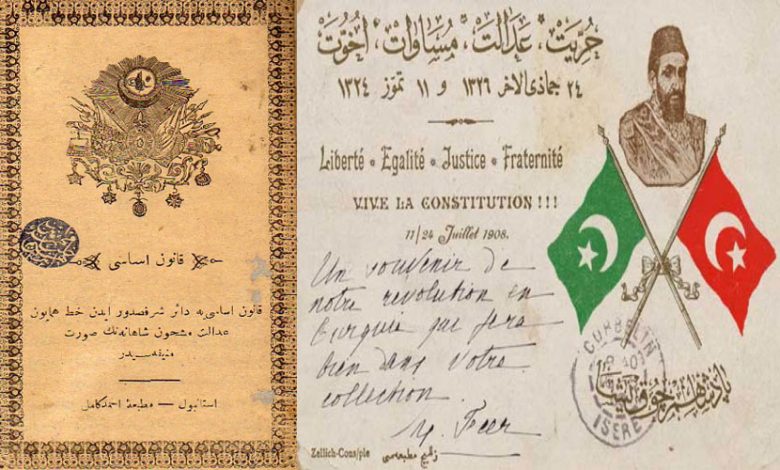 قانون اساسی
قانون اساسی‌یه دائر شرفصدور ایدن خط همایون
عدالت مشحون شاهانه‌نك صورت
منیفه‌سیدر
استانبول — مطبعهٔ احمد کامل
حریت، عدالت، مساوات، اخوت
٢٤ جماذی الاخر ١٣٢٦ و ١١ تموز ١٣٢٤
Liberté * Egalité * Justice * Fraternité
VIVE LA CONSTITUTION!!!
11/24 Juillet 1908.
Un souvenir de
notre revolution en
Turquie que fera
bien dans votre
collection.
M. Feer
CORBELIN
ISERE
پادشاهم چوق یشا
Zellich-Cons/ple
زلیچ مطبعه‌سی